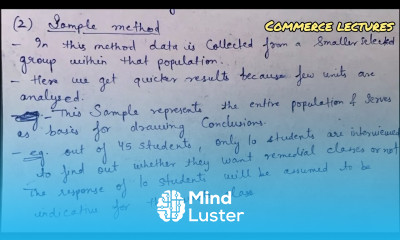 COMMERCE LECTURES
(2) Sample method
- In this method data is Collected from a Smaller selected
group within that population.
- Here we get quicker results because few units are
analysed.
- This Sample represents the entire population & serves
as basis for drawing Conclusions.
- eg. out of 45 students, only 10 students are interviewed
to find out whether they want remedial classes or not
The response of 10 students will be assumed to be
indicative for the class
Mind
Luster